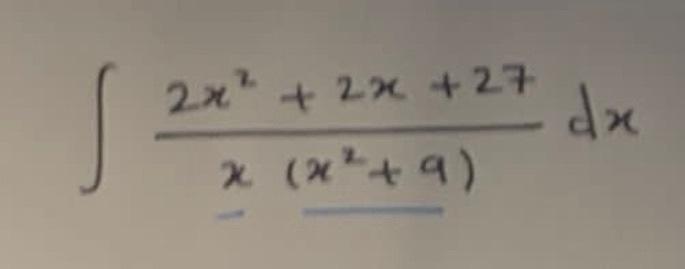 ∫ (2x² + 2x + 27) / (x (x² + 9)) dx